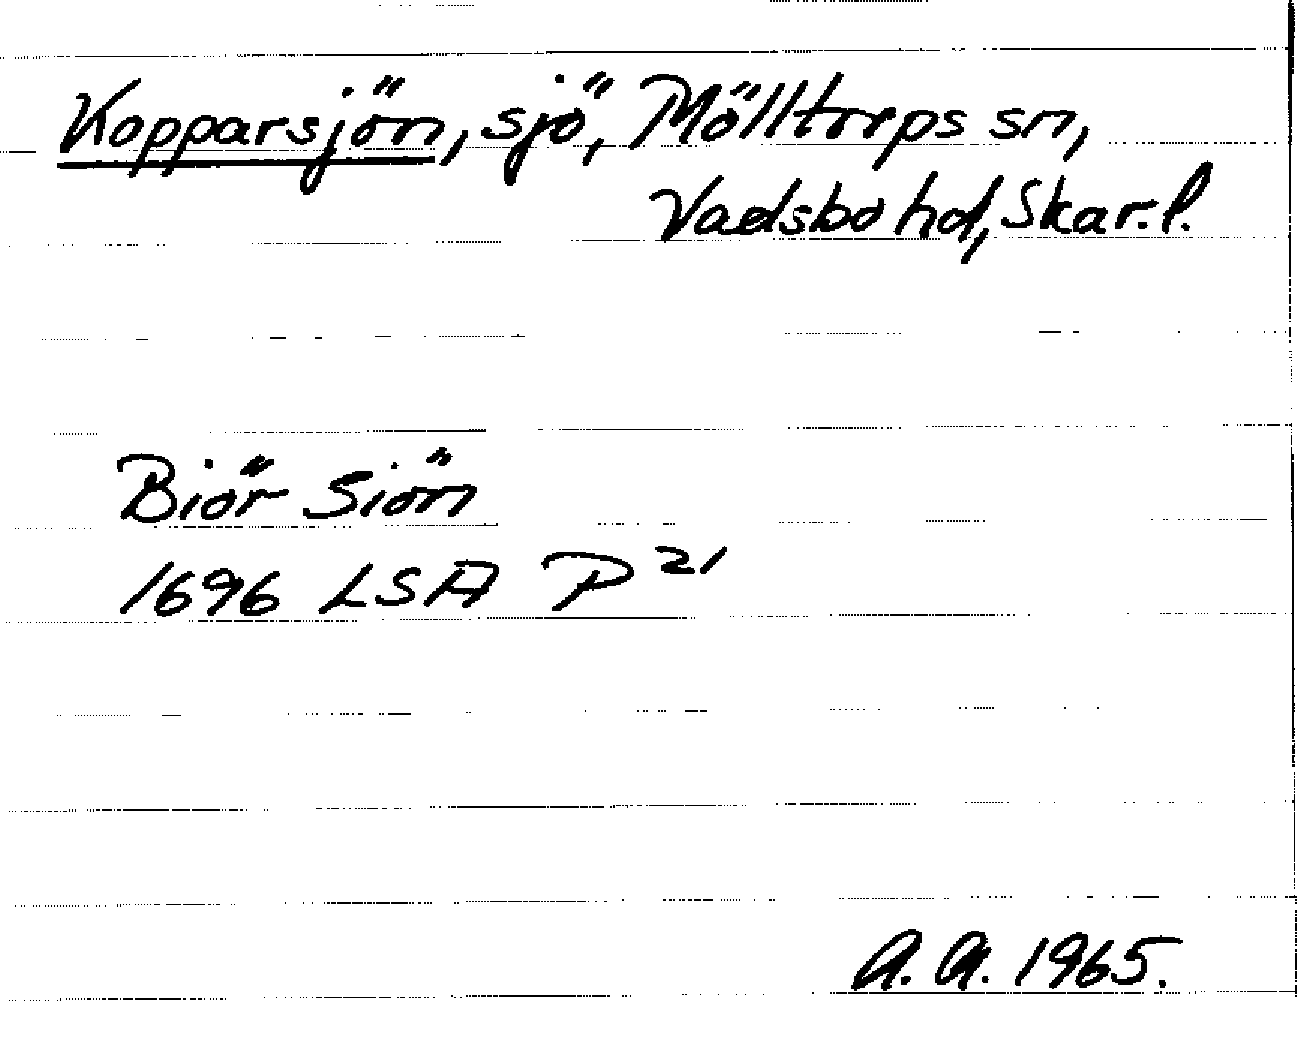 Kopparsjön, sjö, Mölltorps sn,
Vadsbo hd, Skar. l.
Biör Siön
1696 LSA P 21
A. A. 1965.